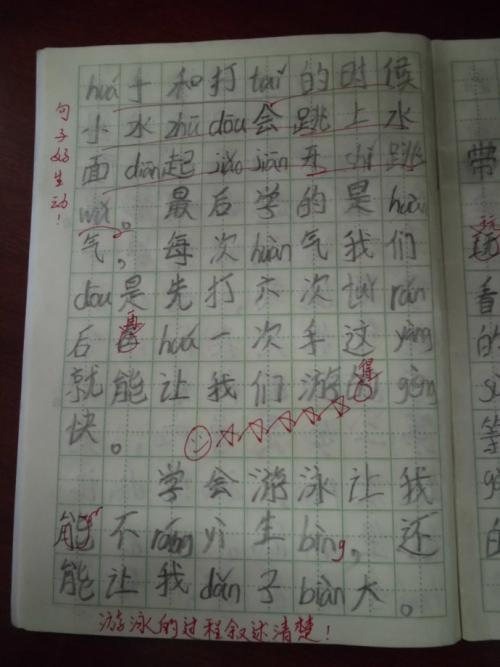 huá手和打tuǐ的时候
小水zhū dōu会跳上水
面diǎn起jiǎo jiān开shǐ跳
wǔ。最后学的是huàn
气，每次huàn气我们
dōu是先打六次tuǐ rán
后再huá一次手这yàng
就能让我们游得gèng
快。
学会游泳让我
能不róng yì生bìng，还
能让我dǎn子biàn大。
句子好生动！
游泳的过程叙述清楚！
带
玩
看
的
等